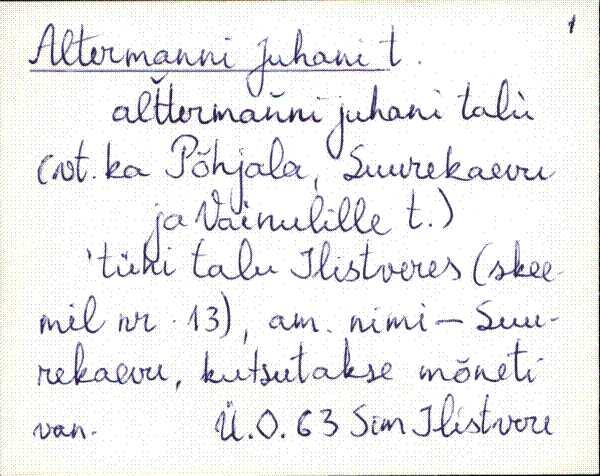 1
Altermanni Juhani t.
alťtermanňi juhani talù
(vt. ka Põhjala, Suurekaevu
ja Vainulille t.)
'tühi talu Ilistveres (skee-
mil nr. 13), am. nimi – Suu-
rekaevu, kutsutakse mõneti
van. Ü.O. 63 Sim Ilistvere